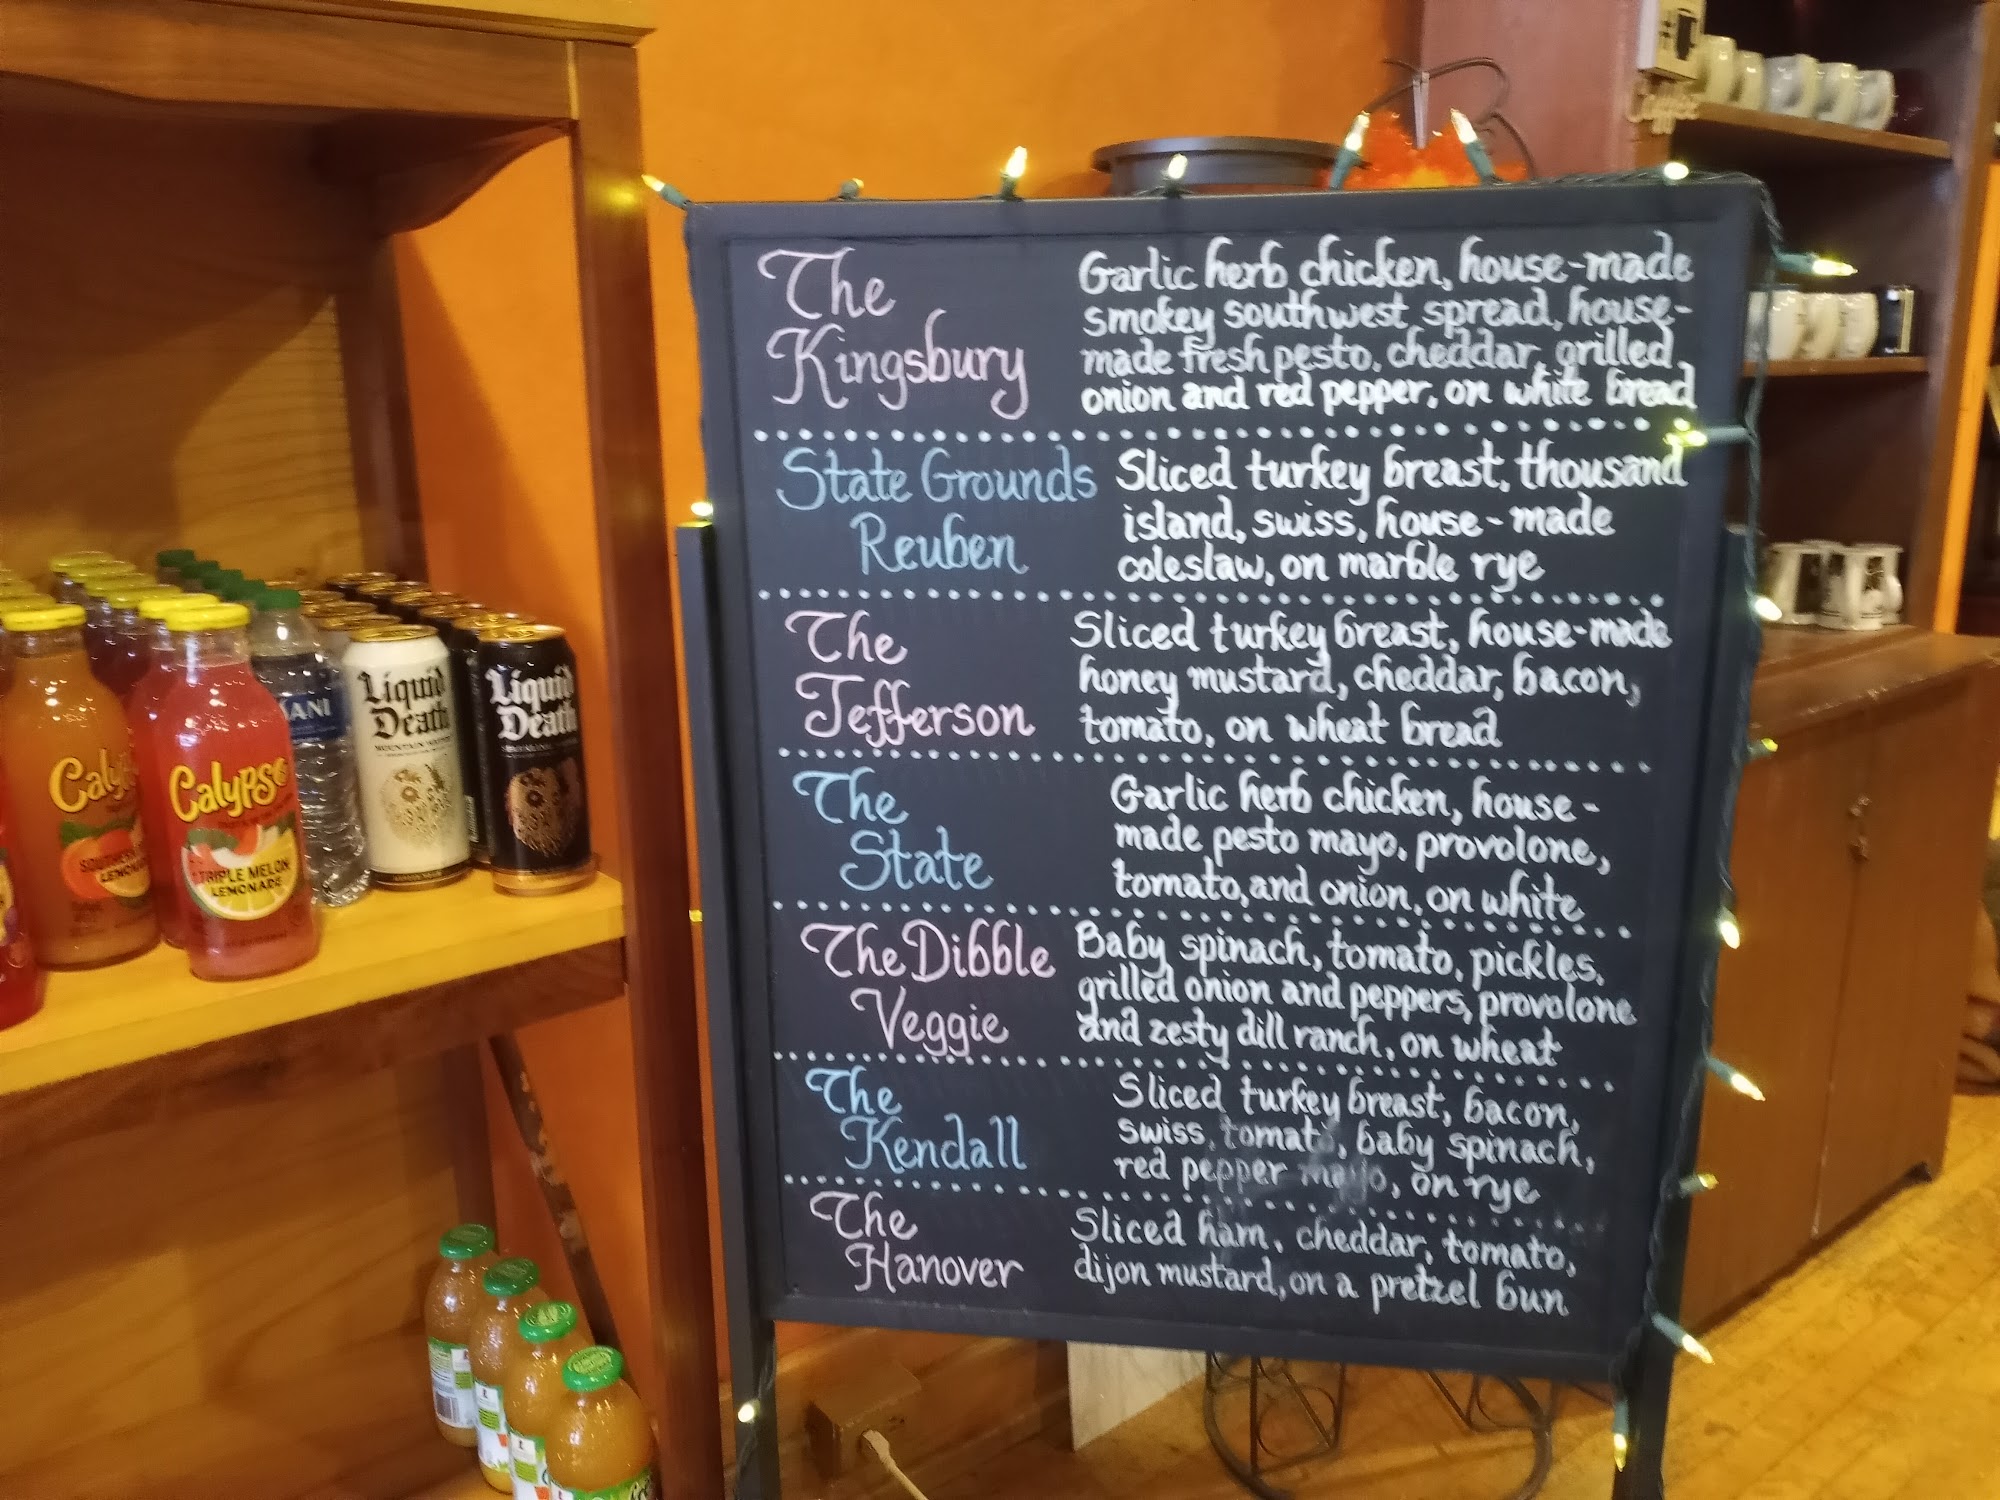 The
Kingsbury
Garlic herb chicken, house-made
smokey southwest spread, house-
made fresh pesto, cheddar, grilled
onion and red pepper, on white bread
State Grounds
Reuben
Sliced turkey breast, thousand
island, swiss, house-made
coleslaw, on marble rye
The
Jefferson
Sliced turkey breast, house-made
honey mustard, cheddar, bacon,
tomato, on wheat bread
The
State
Garlic herb chicken, house-
made pesto mayo, provolone,
tomato, and onion, on white
The Dibble
Veggie
Baby spinach, tomato, pickles,
grilled onion and peppers, provolone
and zesty dill ranch, on wheat
The
Kendall
Sliced turkey breast, bacon,
swiss, tomato, baby spinach,
red pepper mayo, on rye
The
Hanover
Sliced ham, cheddar, tomato,
dijon mustard, on a pretzel bun
Calypso
TRIPLE MELON
LEMONADE
Caly
LEMON
SANI
Liquid
Death
MOUNTAIN
Liquid
Death
Coffee